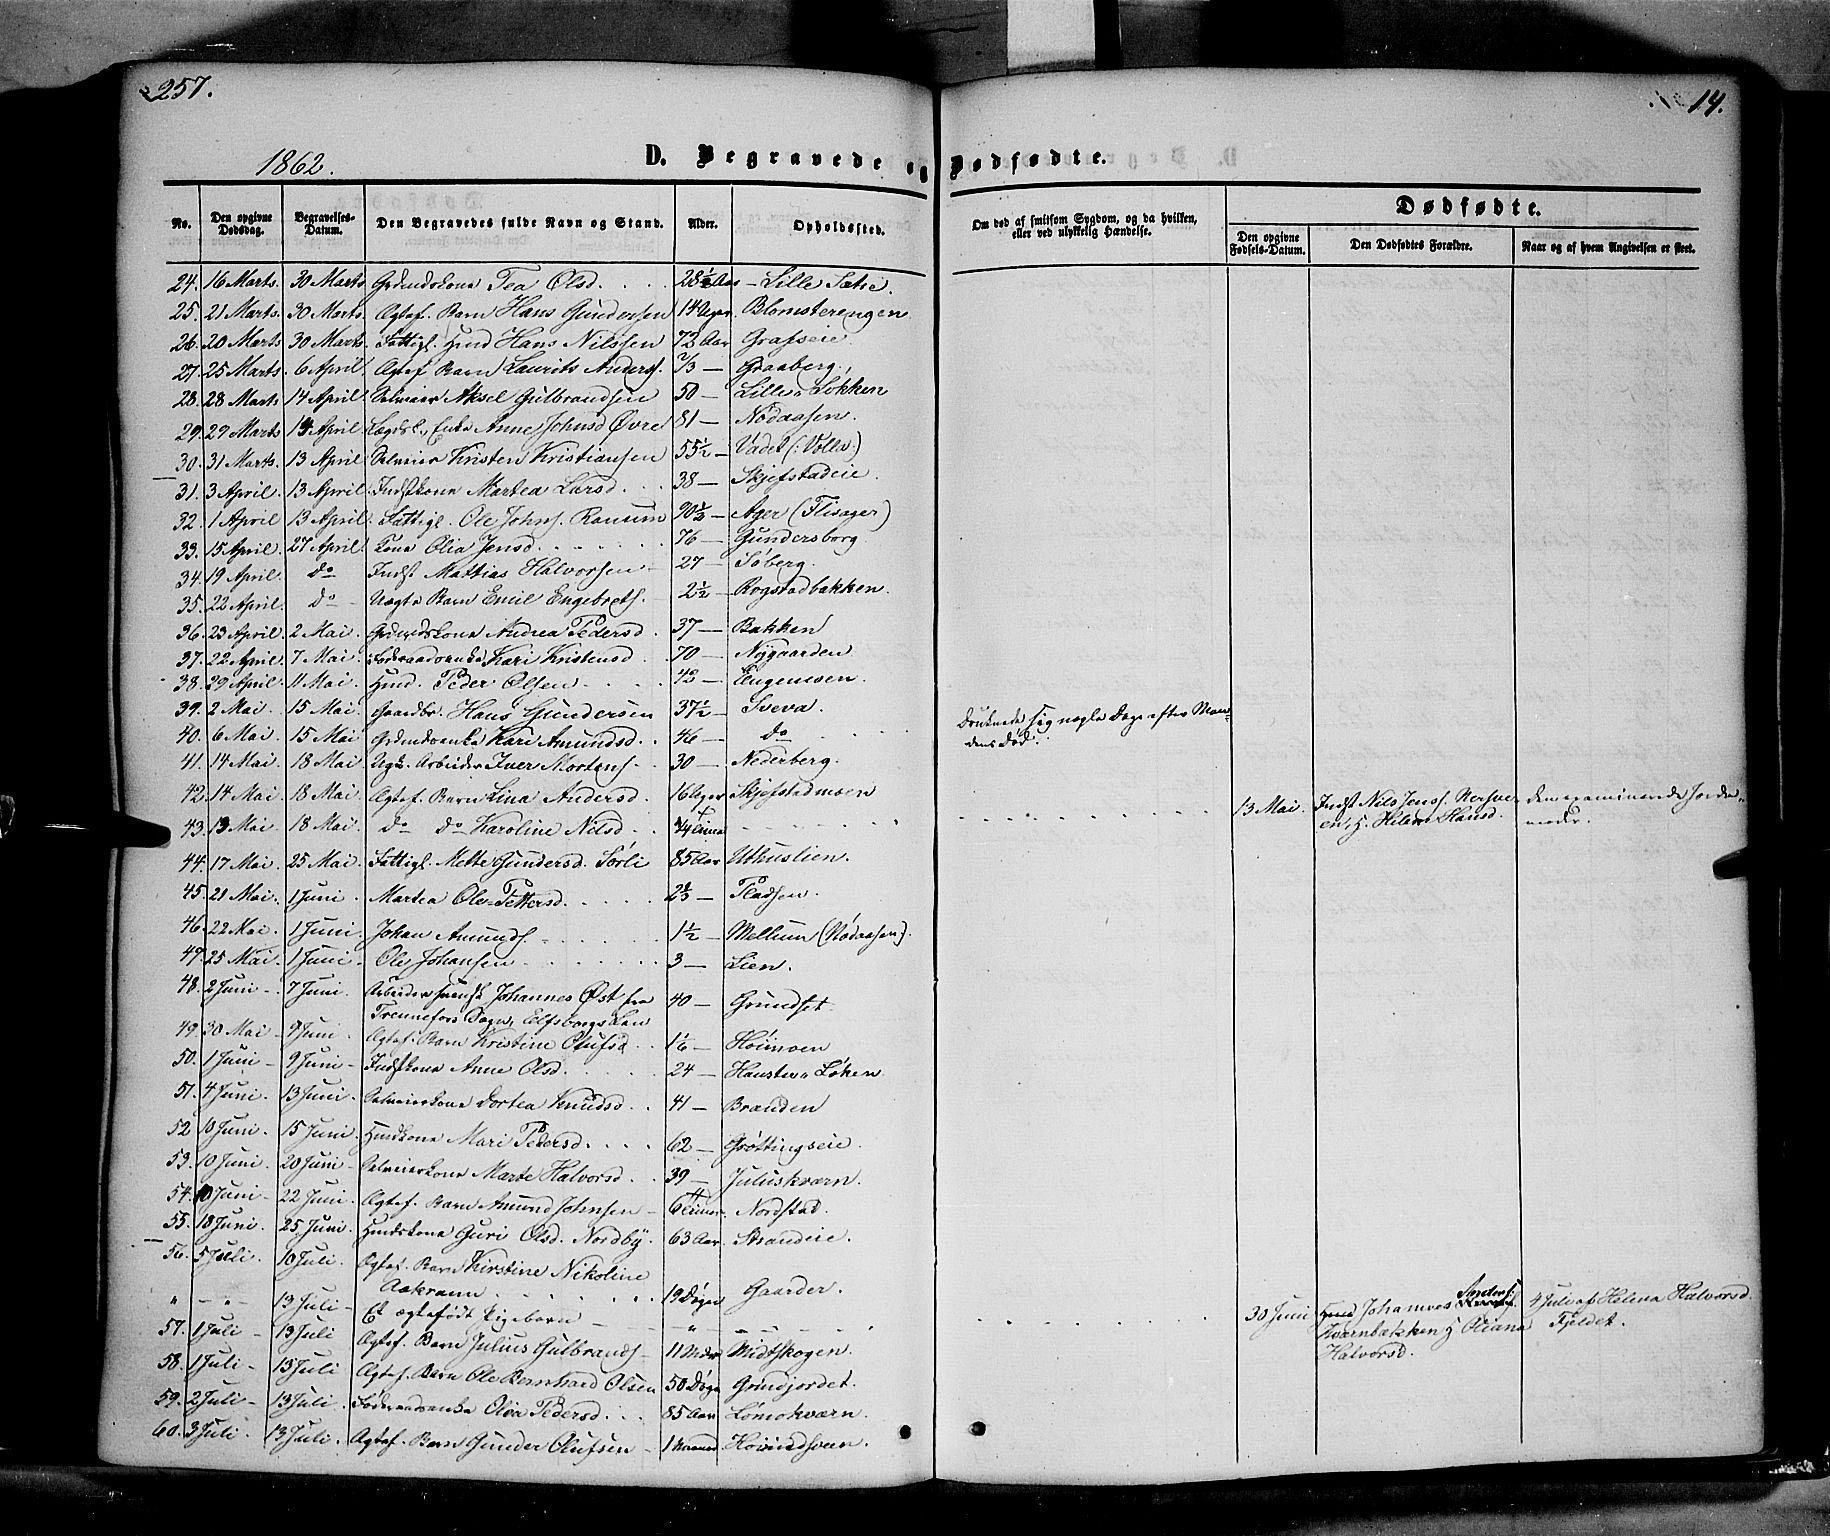 257.
14.
1862.
D. Begravede og Dødfødte.
No.
Den opgivne Dødsdag.
Begravelses-Datum.
Den Begravedes fulde Navn og Stand.
Alder.
Opholdssted.
Om død af smitsom Sygdom, og da hvilken, eller ved ulykkelig Hændelse.
Dødfødte.
Den opgivne Fødsels-Datum.
Den Dødfødtes Forældre.
Naar og af hvem Angivelsen er skeet.
24. 16 Marts. 30 Marts Grdmdskone Tea Olsd. 28½ Aar – Lille Sætre.
25. 21 Marts. 30 Marts. Ægtef. Barn Hans Gundersen 14 Uger. Blomsterengen
26. 20 Marts 30 Marts. Fattigl. Huusmd Hans Nilssen 72 Aar Grafseie.
27. 25 Marts. 6 April Ægtef. Barn Laurits Anders. 2/3 — Graaberg.
28. 28 Marts 14 April Selveier Aksel Gulbrandsen 50 — Lille Løkken
29. 29 Marts 14 April Lægdsl. Enke Anne Johnsd Øvre 81 — Nødaasen.
30. 31 Marts. 13 April Selveier Kristen Kristiansen 55½ — Vadet (: Volla :)
31. 3 April. 13 April. Indstkone Martea Larsd. 38 — Skjefstadeie.
32. 1 April 13 April. Fattigl. Ole Johns. Ranum 90½ — Ager (Flisager)
33. 15 April. 27 April. Kone Olia Jensd. 76 — Gundersborg
34. 19 April. do Indst Mattias Halvorsen 27 — Søberg.
35. 22 April. do Uægte Barn Emil Engebrets. 2½ — Rogstadbakken.
36. 23 April. 2 Mai. Grdmdskone Andrea Pedersd. 37 — Bakken
37. 22 April. 7 Mai. Føderaadsenke Kari Kristensd. 70 — Nygaarden
38. 29 April. 11 Mai. Huusmd. Peder Olsen 42 — Engemoen.
39. 2 Mai. 15 Mai. Gaardbr. Hans Gundersen 37½ — Sveva.
40. 6 Mai. 15 Mai Grdmdsenke Kari Amundsd. 46 — do Druknede sig nogle Dage efter Mandens Død.
41. 14 Mai. 18 Mai. Ugk. Arbeider Iver Mortens. 30 — Nederberg.
42. 14 Mai 18 Mai. Ægtef. Barn Lina Andersd. 16 Uger Skjefstadmoen
43. 13 Mai. 18 Mai. do do Karoline Nilsd. 3/4 Time 13 Mai. Indst Nils Jens. Nersveen, H. Helene Hansd. den examinerede Jordemoder.
44. 17 Mai. 25 Mai. Fattigl. Mette Gundersd. Sørli 85 Aar Uthuslien.
45. 21 Mai. 1 Juni. Martea Ole-Pettersd. 2⅔ — Pladsen.
46. 22 Mai. 1 Juni. Johan Amunds. 1½ — Mellum (Nødaasen).
47. 25 Mai. 1 Juni. Ole Johansen 3 — Lien.
48. 2 Juni 7 Juni. Arbeider svensk Johannes Øst fra 40 — Grundset.
Trennefors Sogn, Elfsborgs Län
49. 30 Mai 9 Juni. Ægtef. Barn Kristine Olufsd 1⅙ — Høimoen
50. 1 Juni 9 Juni. Indstkone Anne Olsd. 24 — Hanstu Løken.
51. 4 Juni. 13 Juni. Selveierkone Dortea Knudsd. 41 — Branden
52 10 Juni. 15 Juni. Huusmdkone Mari Pedersd. 62 — Grøttingseie.
53. 10 Juni. 20 Juni Selveierkone Marte Halvorsd. 39 — Juluskværn.
54. 10 Juni 22 Juni. Ægtef. Barn Amund Johnsen 6 Timer. Nordstad.
55. 18 Juni. 25 Juni. Huusmdskone Guri Olsd. Nordby. 63 Aar. Strandeie.
56. 5 Juli. 10 Juli. Ægtef. Barn Kirstine Nikoline
Aakrann 19 Døgn Gaarder.
" – " – 13 Juli Et ægtefødt Pigebarn 30 Juni Huusmd Johannes Anders. Kvernbækken H Oliana Halvorsd. 4 Juli af Helena Halvorsd. Fjeldet.
57. 1 Juli 13 Juli Ægtef. Barn Julius Gulbrands 11 Mdr Midtskogen.
58. 1 Juli 13 Juli Ægtef. Barn Ole Bernhard Olsen 50 Døgn Grindjordet.
59. 2 Juli 13 Juli. Føderaadsenke Olea Pedersd. 85 Aar Lømokværn.
60. 3 Juli. 13 Juli. Ægtef. Barn Gunder Olufsen 1 Maaned Høvindsveen.